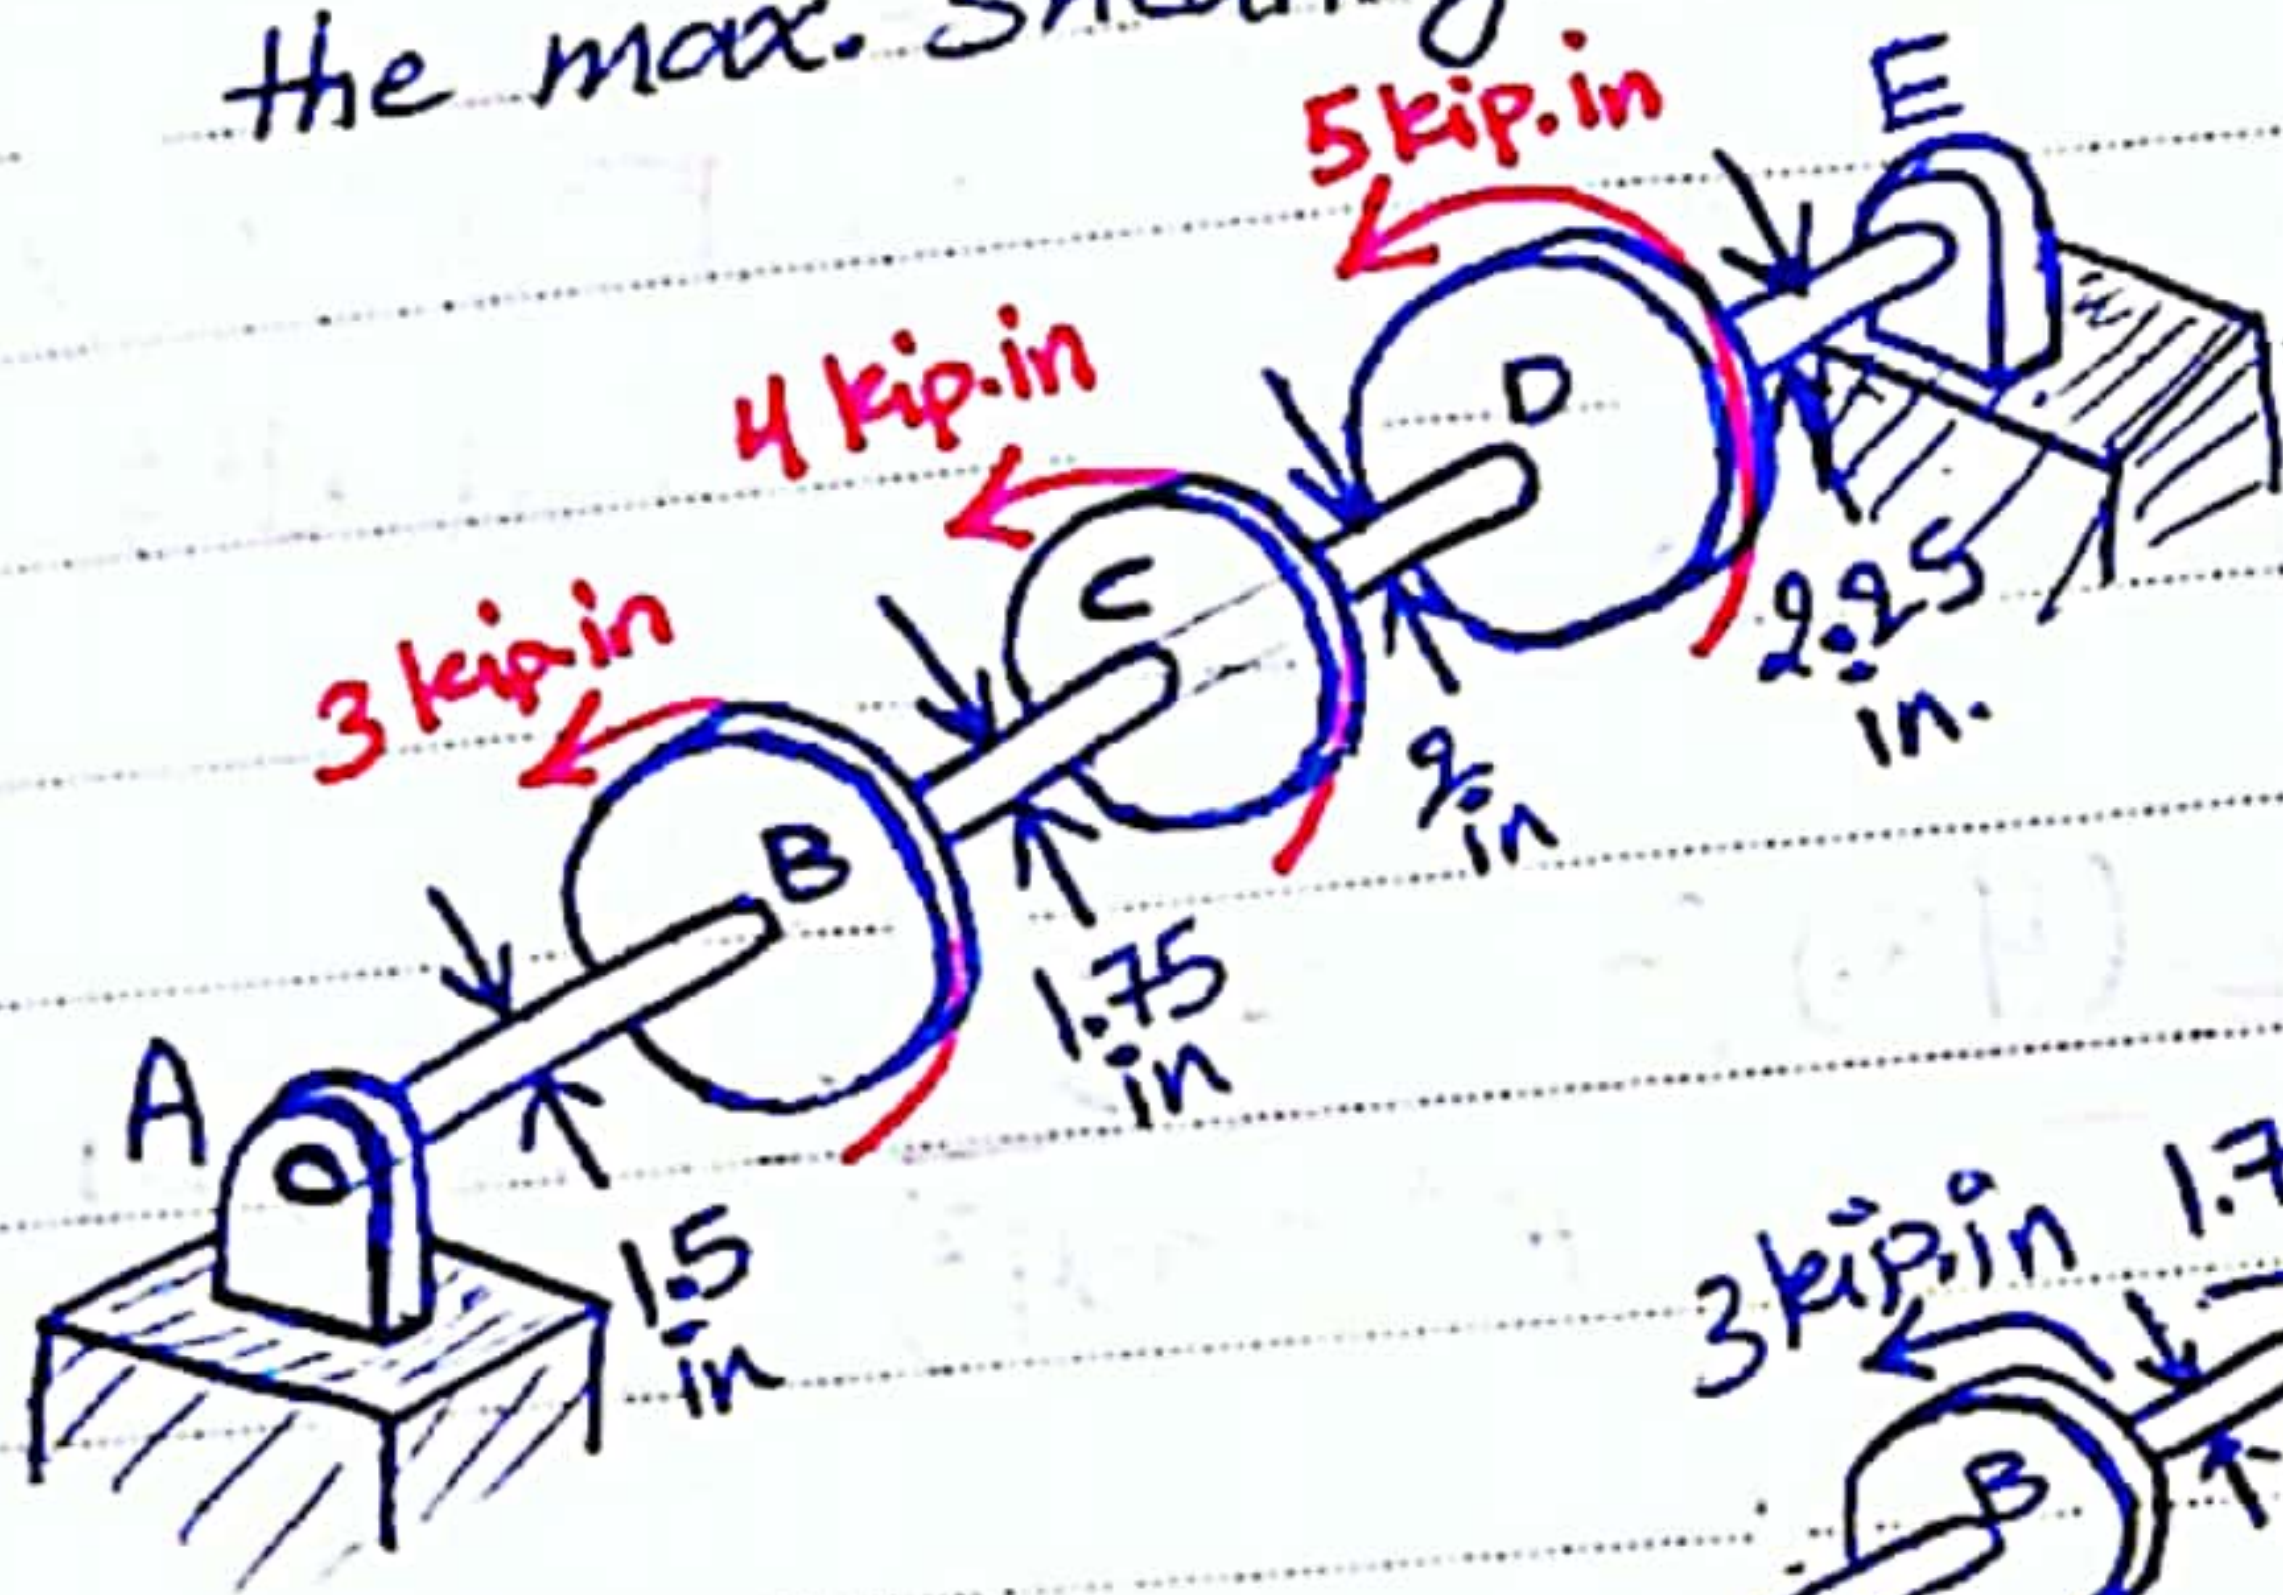 the max. Shearing
5 kip.in
E
4 kip.in
D
3 kip.in
C
2.25
in.
B
2
in
1.75
in
A
1.5
in
3 kip.in 1.7
B